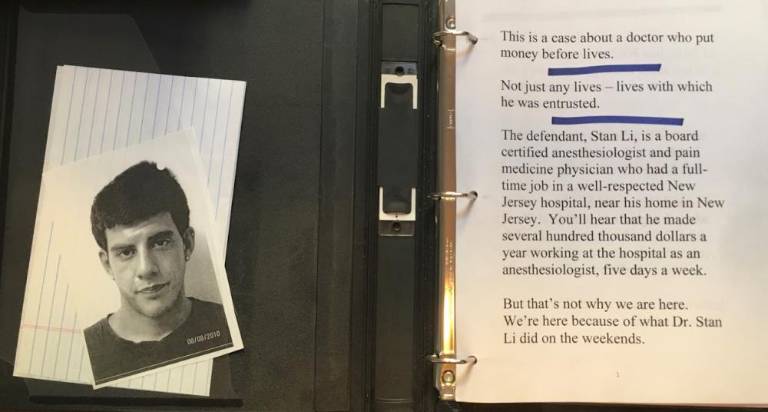 08/08/2010
This is a case about a doctor who put
money before lives.
Not just any lives – lives with which
he was entrusted.
The defendant, Stan Li, is a board
certified anesthesiologist and pain
medicine physician who had a full-
time job in a well-respected New
Jersey hospital, near his home in New
Jersey. You’ll hear that he made
several hundred thousand dollars a
year working at the hospital as an
anesthesiologist, five days a week.
But that’s not why we are here.
We’re here because of what Dr. Stan
Li did on the weekends.
1